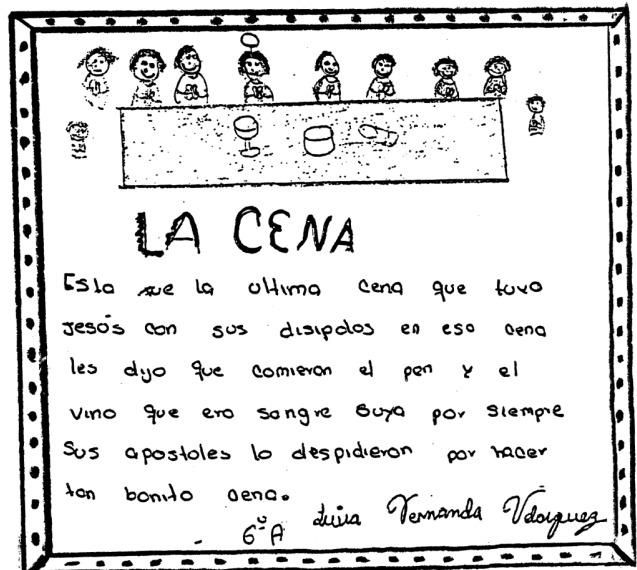 LA CENA
Esta fue la ultima cena que tuvo
Jesús con sus disipolos en esa cena
les dijo que comieron el pan y el
vino que era sangre suya por siempre
Sus apostoles lo despidieron por hacer
tan bonita cena.
6º A Luisa Fernanda Vásquez